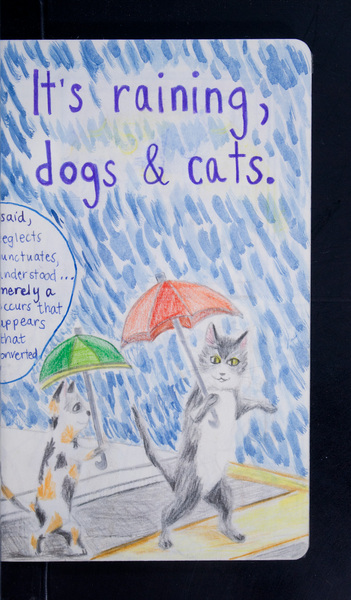 It's raining,
dogs & cats.
said,
eglects
unctuates,
nderstood...
merely a
ccurs that
appears
that
onverted